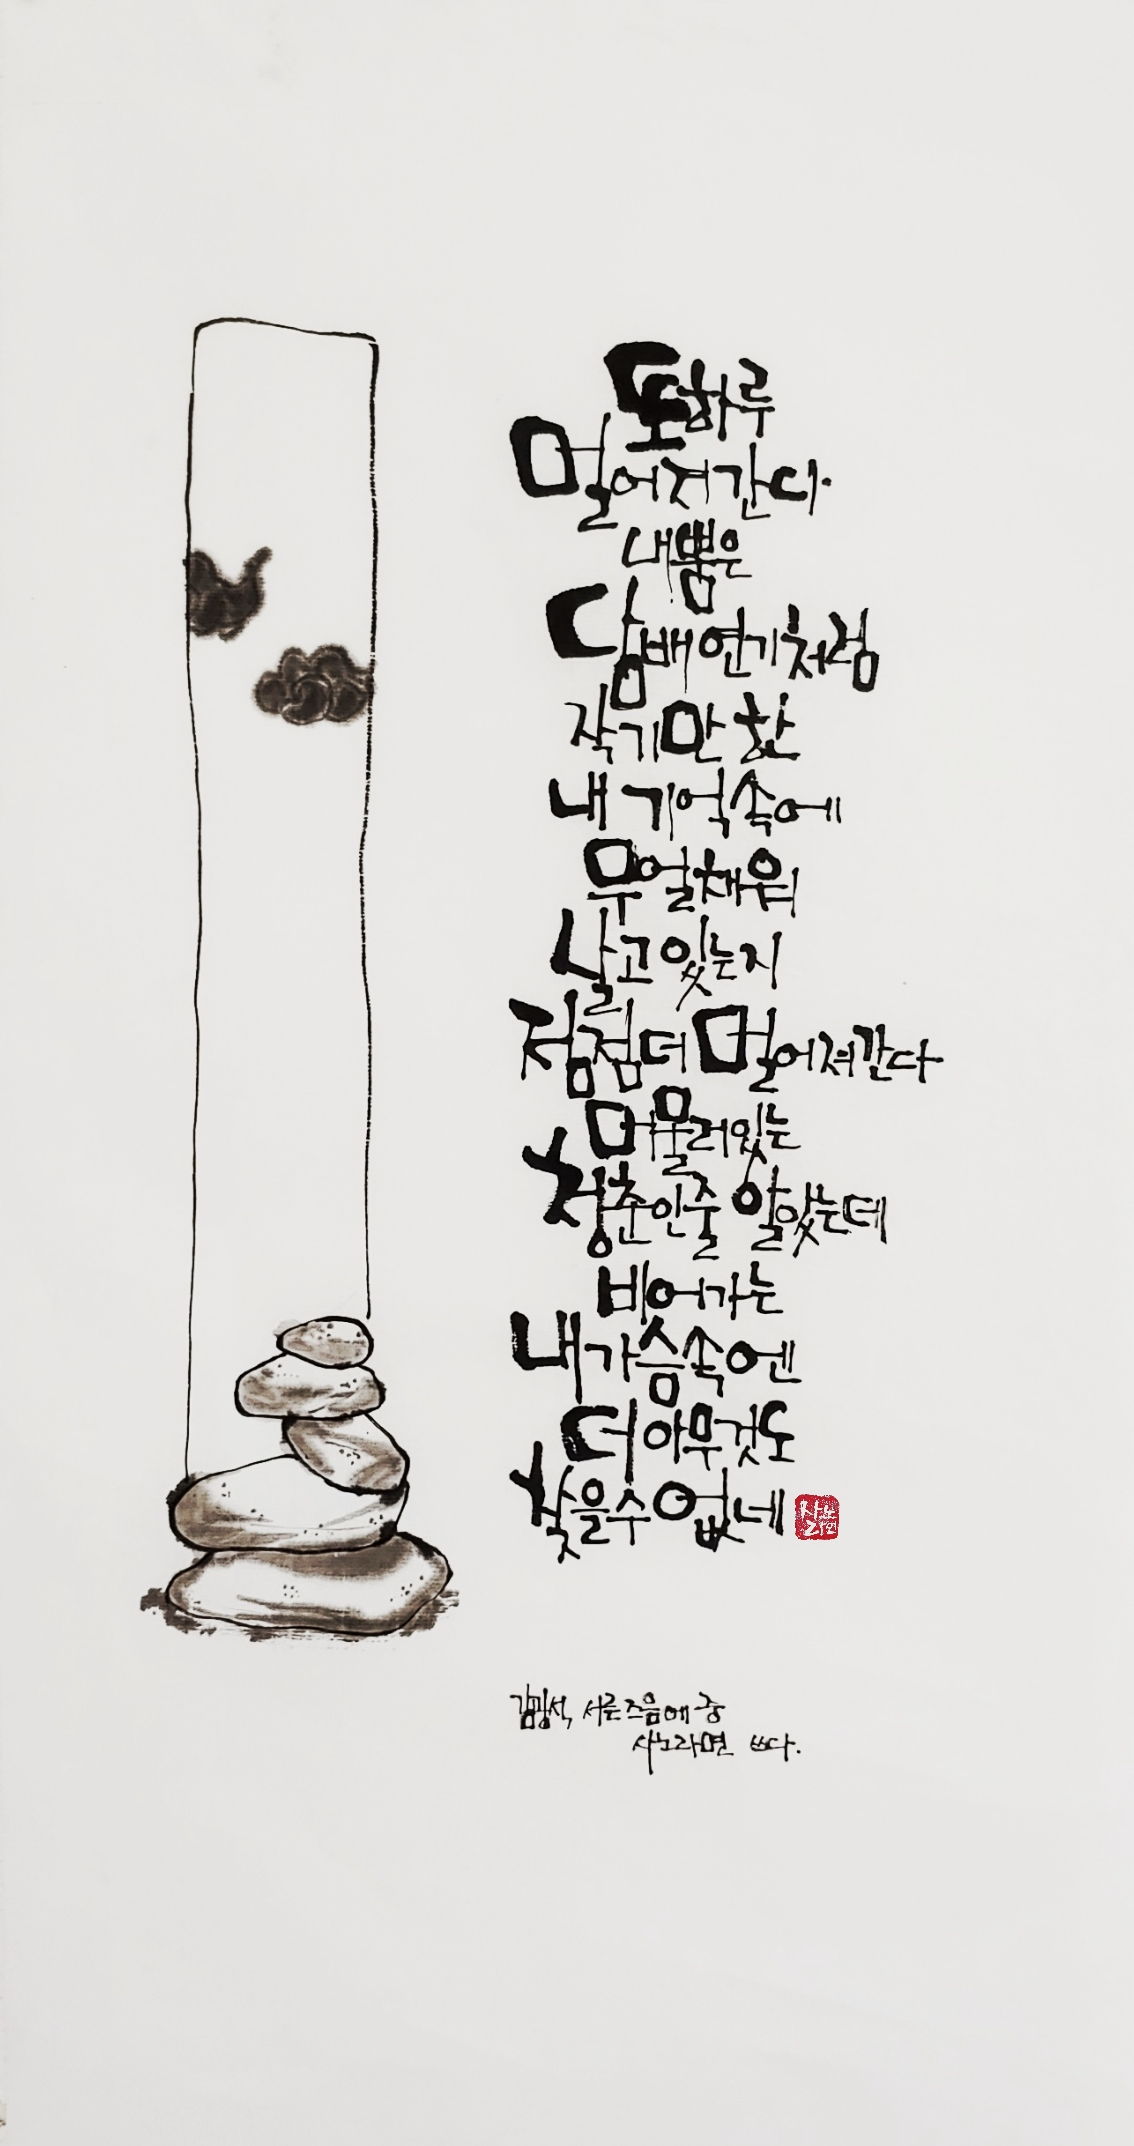 또 하루
멀어져 간다.
내뿜은
담배 연기처럼
작기만 한
내 기억 속에
무얼 채워
살고 있는지
점점 더 멀어져 간다
머물러 있는
청춘인 줄 알았는데
비어가는
내 가슴 속엔
더 아무것도
찾을 수 없네
사노라면
김광석, 서른 즈음에 중
사노라면 쓰다.